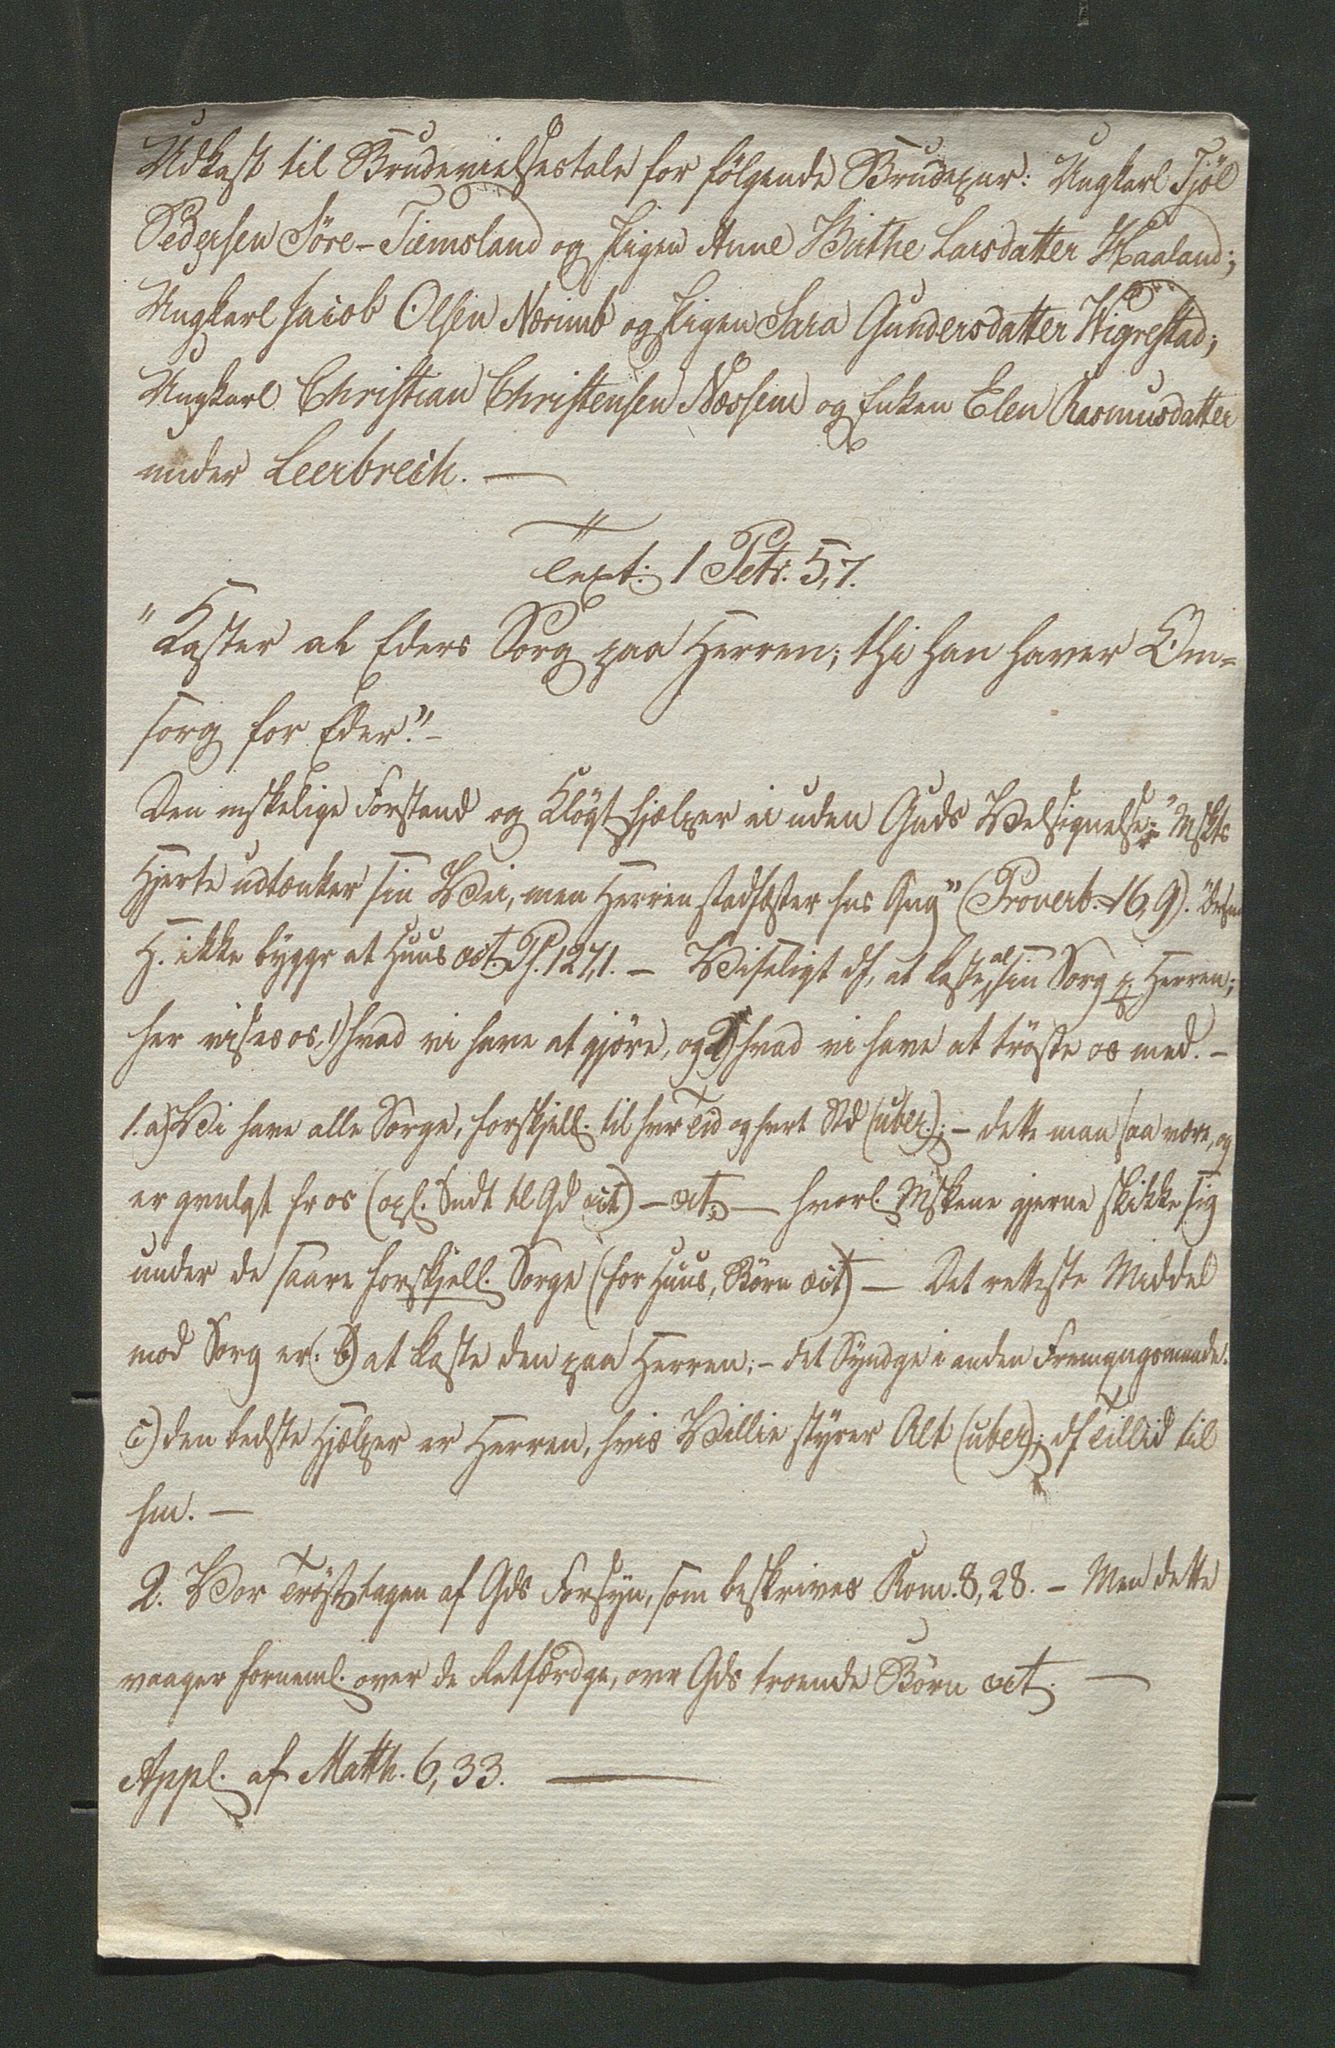 Udkast til Brudevielsestale for følgende Brudepar: Ungkarl Tjöl
Pedersen Söre-Tiemsland og Pigen Anne Birthe Larsdatter Haaland;
Ungkarl Jacob Olsen Nærum og Pigen Sara Gundersdatter Wigrestad;
Ungkarl Christian Christensen Næssene og Enken Elen Rasmusdatter
under Leerbreck. —
Text: 1 Petr. 5,7.
"Kaster al Eders Sorg paa Herren; thi han haver Om=
sorg for Eder." –
Den mskelige Forstand og Kløgt hjælper ei uden Guds Velsignelse: "Mskts
Hjerte udtænker sin Vei, men Herren stadfæster hns Gng" (Proverb. 16,9).
H. ikke bygger et Huus oct. Ps. 127,1. – Viseligt df, at kaste al sin Sorg p Herren;
her vises os, 1) hvad vi have at gjöre, og 2) hvad vi have at tröste os med. –
1. a) Vi have alle Sorge, forskjell. til hver Tid og hvert Std (uber.); – dette maa saa være, og
er gvnlgt fr os (opl. Sndt tl Gd oct) – oct; – hvorl. Mskene gjerne skikke sig
under de saare forskjell. Sorge (for Huus, Börn oct) – Det retteste Middel
mod Sorg er: b) at kaste den paa Herren; – det Syndge i anden Fremgngsmaade.
c) den bedste Hjælper er Herren, hvis Villie styrer Alt (uber); df Tillid til
hm. –
2. Vor Tröst tagen af Gds Forsyn, som beskrives Rom. 8,28. – Men dette
vaager forneml. over de Retfærdge, ovr Gds troende Börn oct. —
Appl. af Matth. 6,33. —